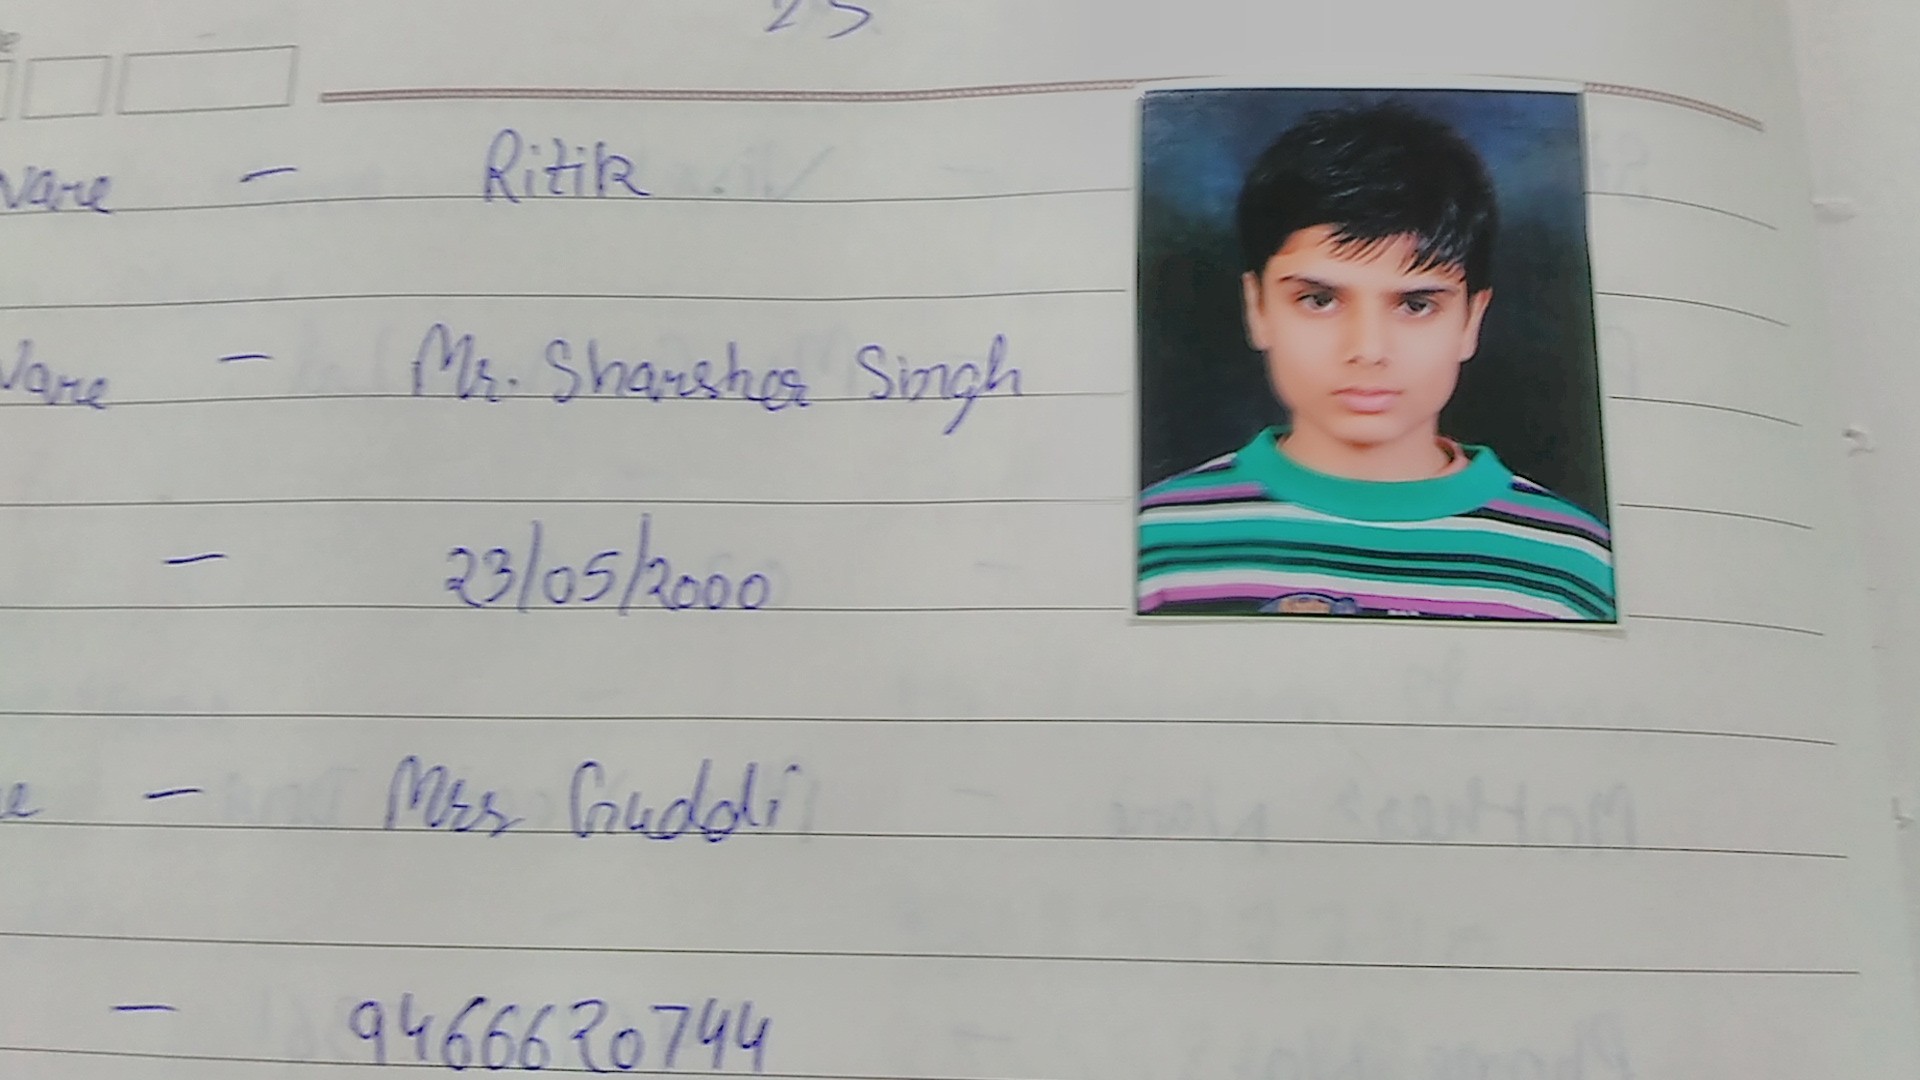 25
Name - Ritik
Name - Mr. Shamsher Singh
- 23/05/2000
- Mrs Guddi
- 9466620744